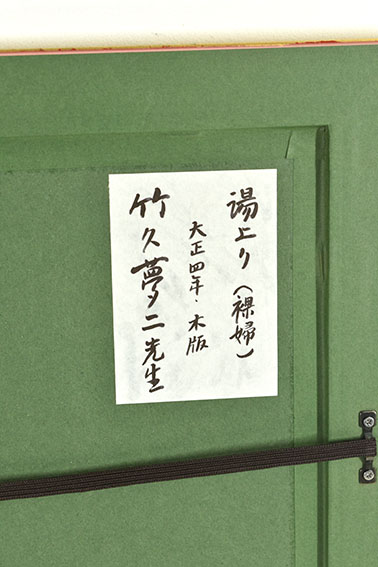 湯上り（裸婦）
大正四年・木版
竹久夢二先生